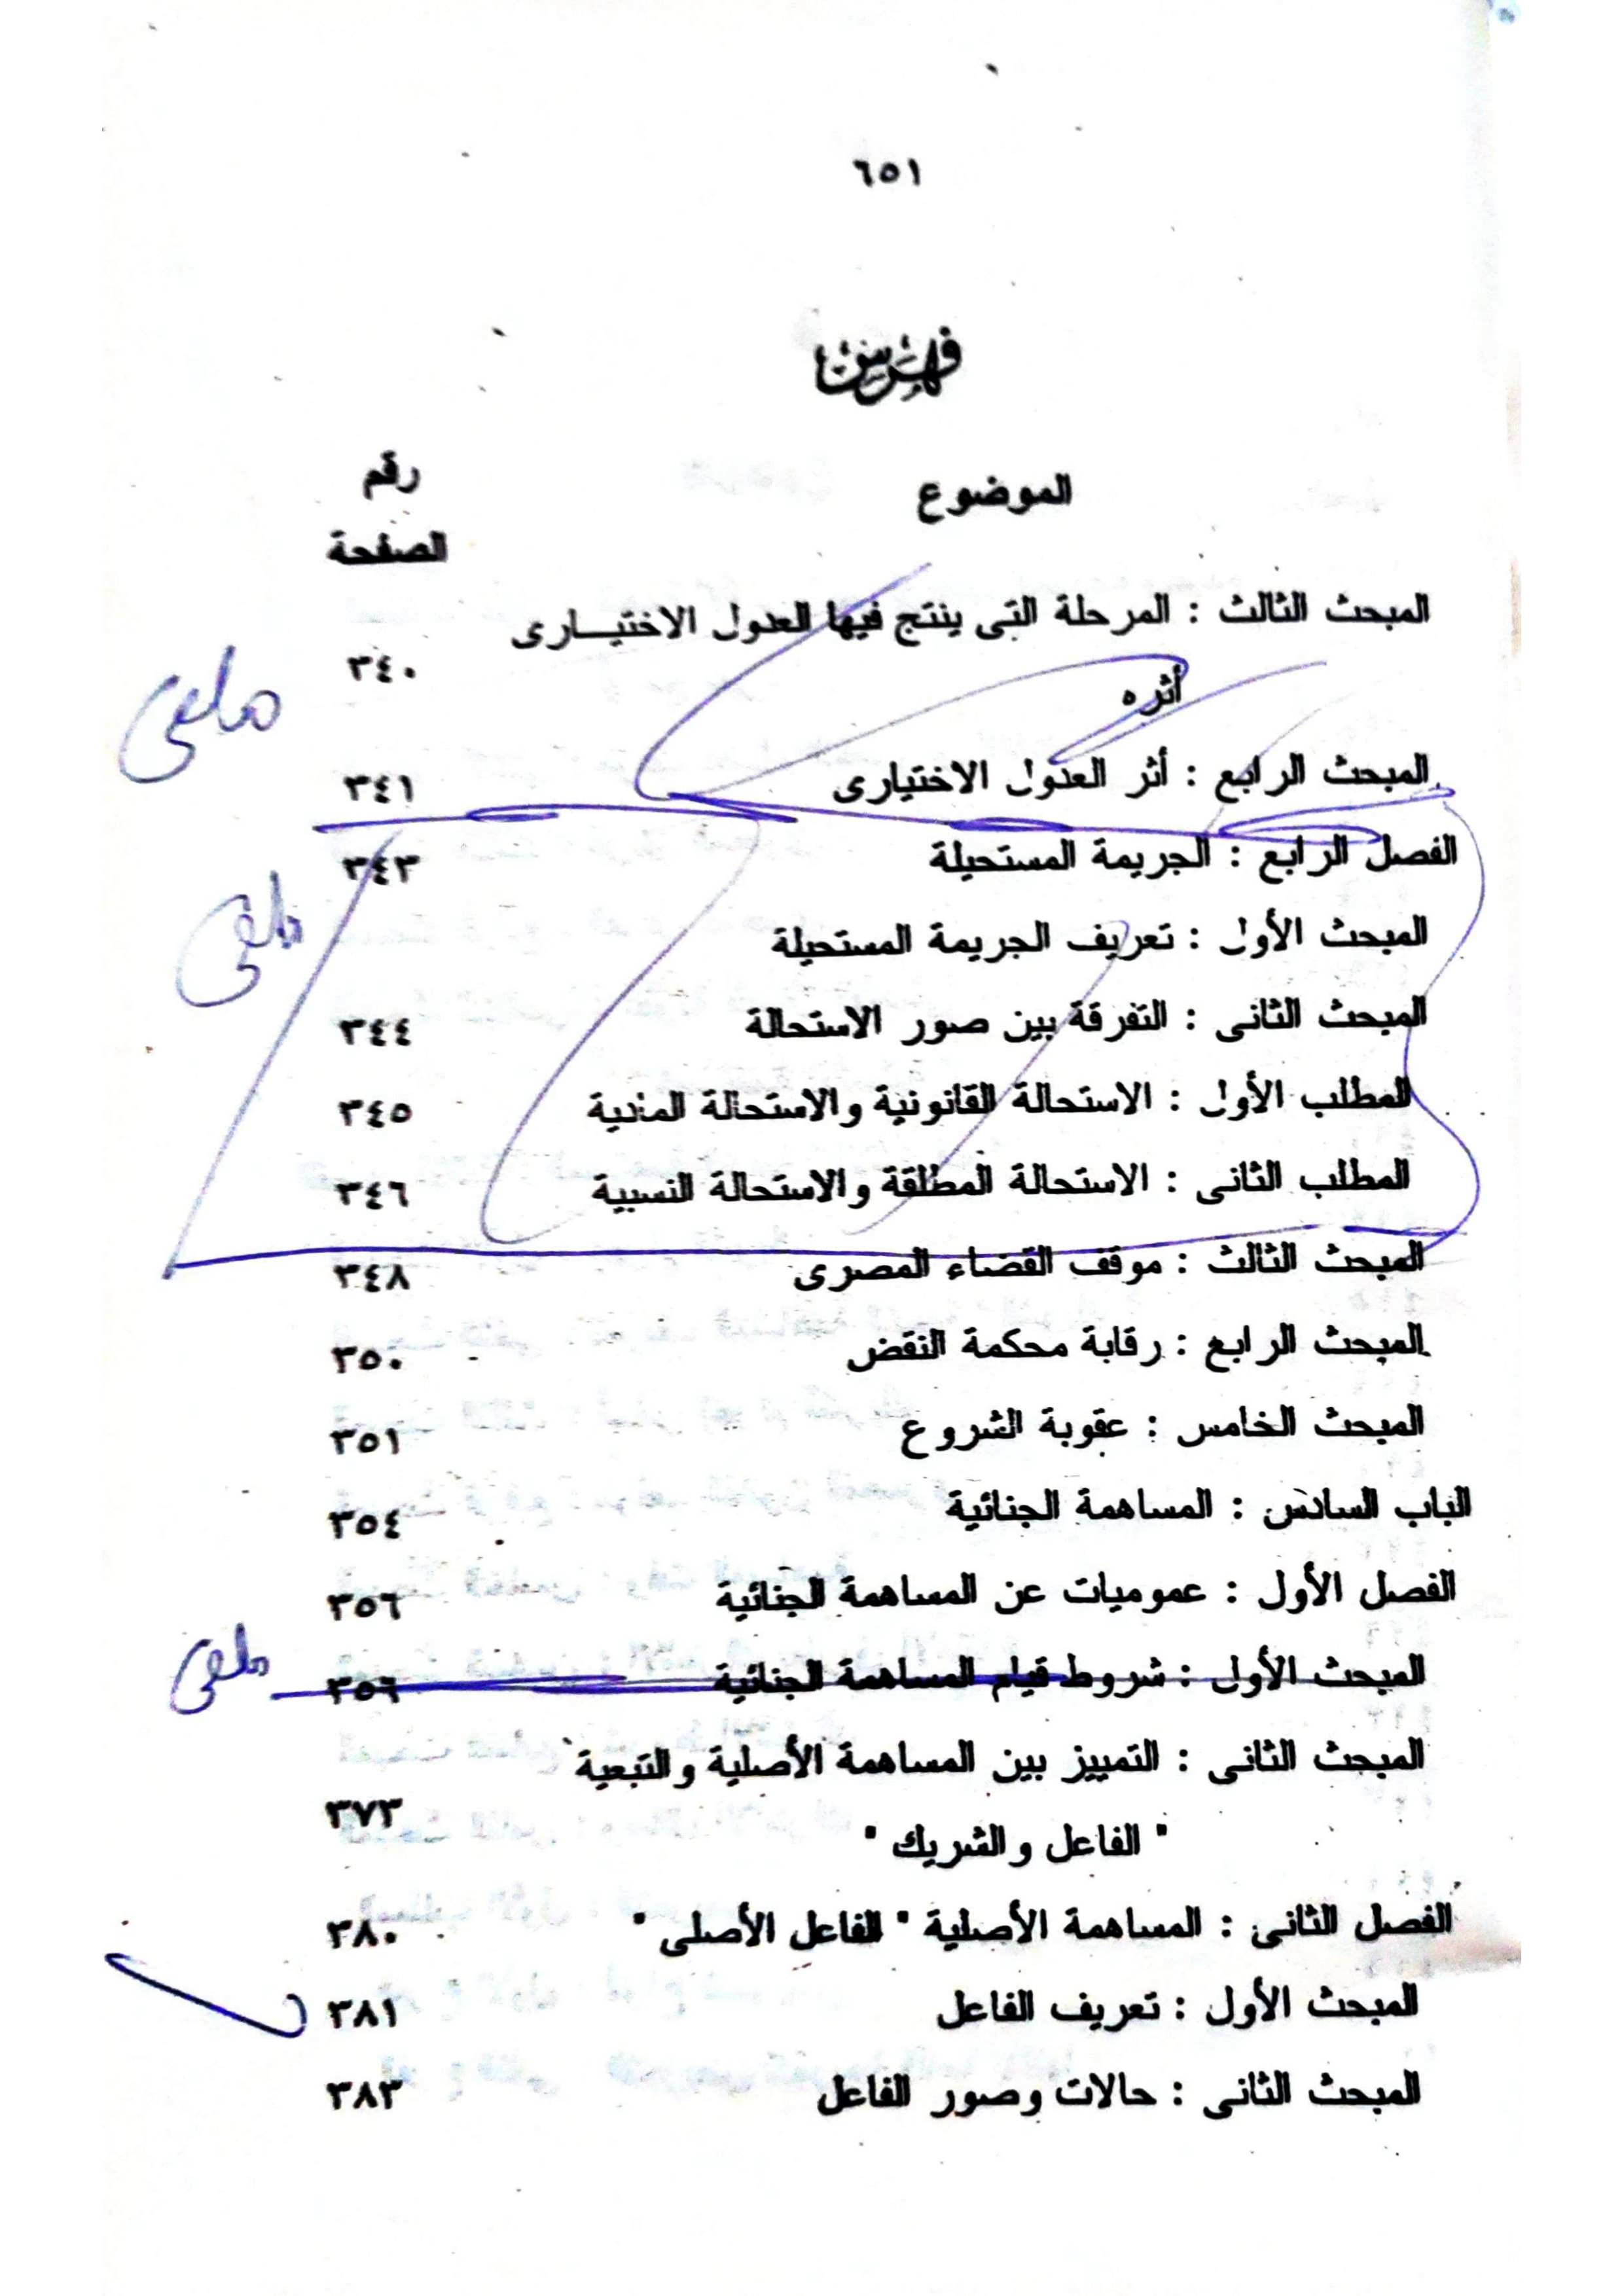 ٦٥١
فهرس
الموضوع
رقم
الصفحة
المبحث الثالث : المرحلة التى ينتج فيها العدول الاختيـــارى
أثره
٣٤٠
ملغى
المبحث الرابع : أثر العدول الاختيارى ٣٤١
الفصل الرابع : الجريمة المستحيلة ٣٤٣
ملغى
المبحث الأول : تعريف الجريمة المستحيلة
المبحث الثانى : التفرقة بين صور الاستحالة ٣٤٤
المطلب الأول : الاستحالة القانونية والاستحالة المادية ٣٤٥
المطلب الثانى : الاستحالة المطلقة والاستحالة النسبية ٣٤٦
المبحث الثالث : موقف القضاء المصرى ٣٤٨
المبحث الرابع : رقابة محكمة النقض ٣٥٠
المبحث الخامس : عقوبة الشروع ٣٥١
الباب السادس : المساهمة الجنائية ٣٥٤
الفصل الأول : عموميات عن المساهمة الجنائية ٣٥٦
المبحث الأول : شروط قيام المساهمة الجنائية ٣٥٦ ملغى
المبحث الثانى : التمييز بين المساهمة الأصلية والتبعية
" الفاعل والشريك " ٣٧٣
الفصل الثانى : المساهمة الأصلية " الفاعل الأصلى " ٣٨٠
المبحث الأول : تعريف الفاعل ٣٨١
المبحث الثانى : حالات وصور الفاعل ٣٨٣